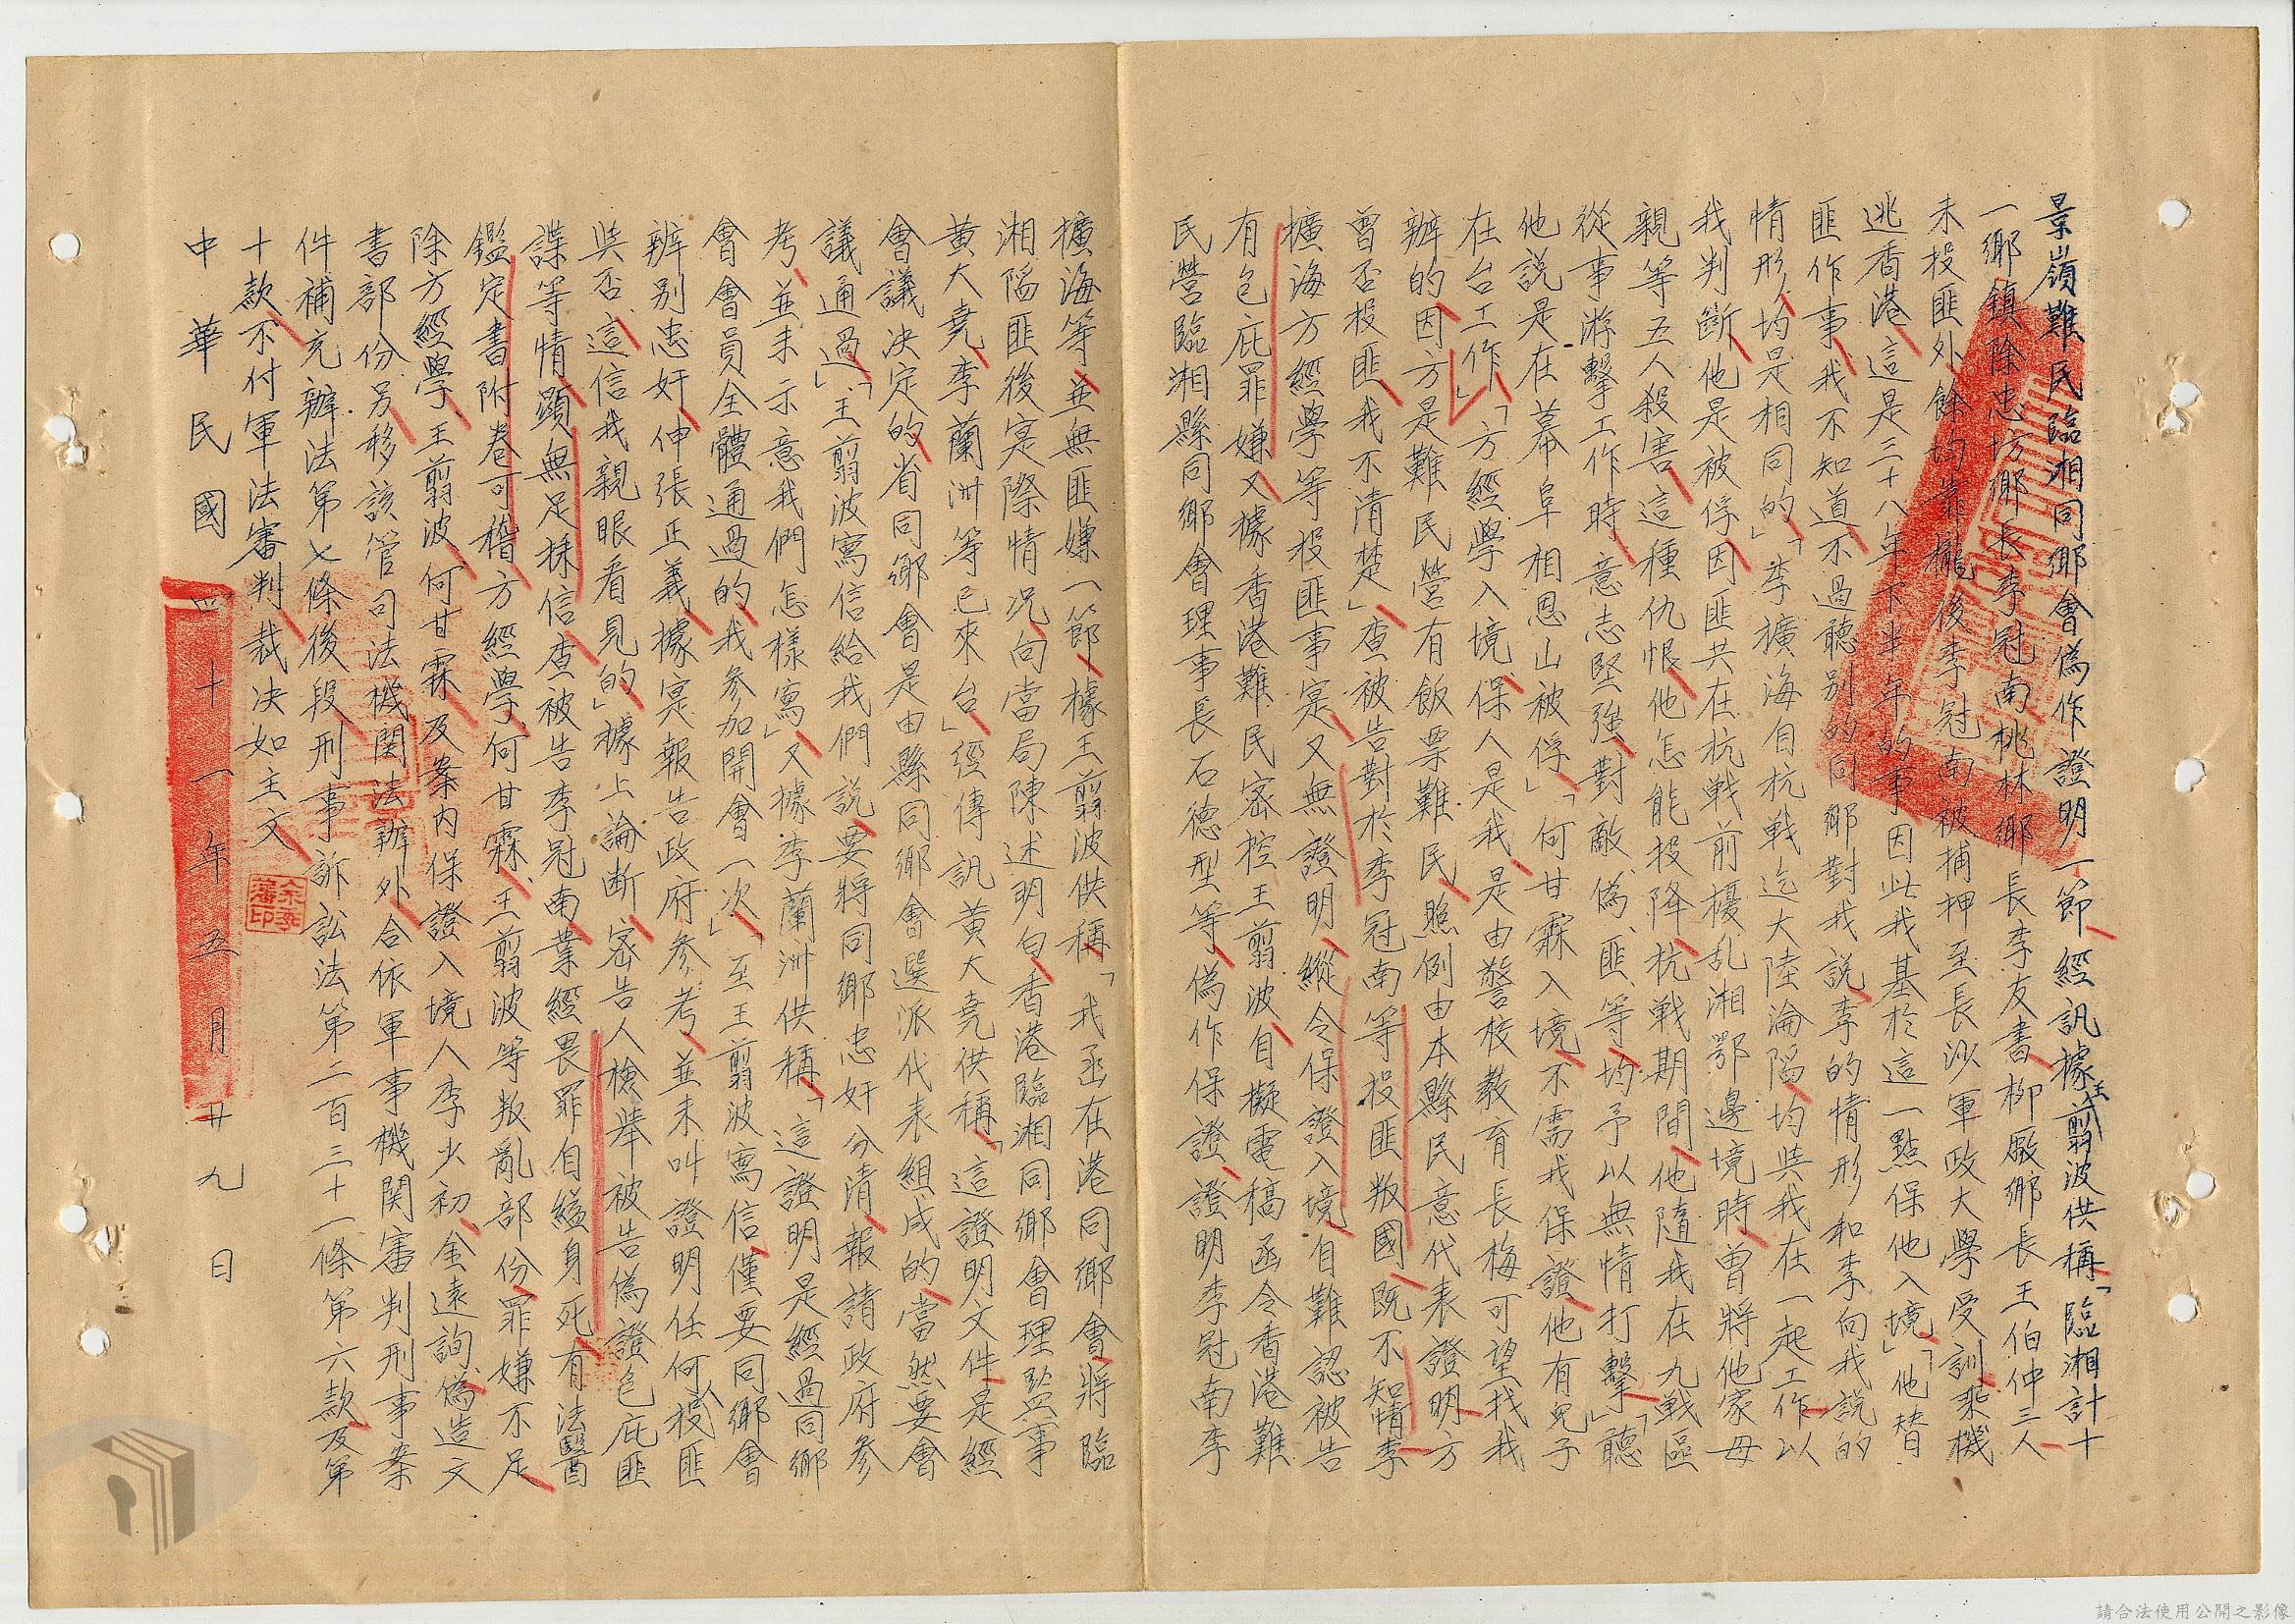 景嶺難民臨湘同鄉會偽作證明一節經訊據王翦波供稱「臨湘計十
一鄉鎮除忠坊鄉長李冠南桃林鄉長李友書柳廠鄉長王伯仲三人
未投匪外餘均靠攏後李冠南被捕押至長沙軍政大學受訓乘機
逃香港這是三十八年下半年的事因此我基於這一點保他入境」「他替
匪作事我不知道不過聽別的同鄉對我說李的情形和李向我說的
情形均是相同的」「李擴海自抗戰迄大陸淪陷均與我在一起工作以
我判斷他是被俘因匪共在抗戰前擾乱湘鄂邊境時曾將他家母
親等五人殺害這種仇恨他怎能投降抗戰期間他隨我在九戰區
從事游擊工作時意志堅強對敵偽匪等均予以無情打擊」「聽
他說是在幕阜相思山被俘」「何甘霖入境不需我保證他有兒子
在台工作」「方經學入境保人是我是由警校教育長梅可望找我
辦的因方是難民營有飯票難民照例由本縣民意代表證明方
曾否投匪我不清楚」查被告對於李冠南等投匪叛國既不知情李
擴海方經學等投匪事寔又無證明縱令保證入境自難認被告
有包庇罪嫌又據香港難民密控王翦波自擬電稿函令香港難
民營臨湘縣同鄉會理事長石德型等偽作保證證明李冠南李
擴海等並無匪嫌一節據王翦波供稱「我函在港同鄉會將臨
湘陷匪後寔際情況向當局陳述明白香港臨湘同鄉會理監事
黃大堯李蘭洲等已來台」經傳訊黃大堯供稱「這證明文件是經
會議決定的省同鄉會是由縣同鄉會選派代表組成的當然要會
議通過」「王翦波寫信給我們說要將同鄉忠奸分清報請政府參
考並未示意我們怎樣寫」又據李蘭洲供稱「這證明是經過同鄉
會會員全體通過的我參加開會一次」「至王翦波寫信僅要同鄉會
辨別忠奸伸張正義據寔報告政府參考並未叫證明任何人投匪
與否這信我親眼看見的」據上論断密告人檢舉被告偽證包庇匪
諜等情顯無足採信查被告李冠南業經畏罪自縊身死有法醫
鑑定書附卷可稽方經學何甘霖王翦波等叛亂部份罪嫌不足
除方經學王翦波何甘霖及案內保證入境人李少初金遠詢偽造文
書部份另移該管司法機関法辦外合依軍事機関審判刑事案
件補充辦法第七條後段刑事訴訟法第二百三十一條第六款及第
十款不付軍法審判裁決如主文
中華民國四十一年五月廿九日
請合法使用公開之影像